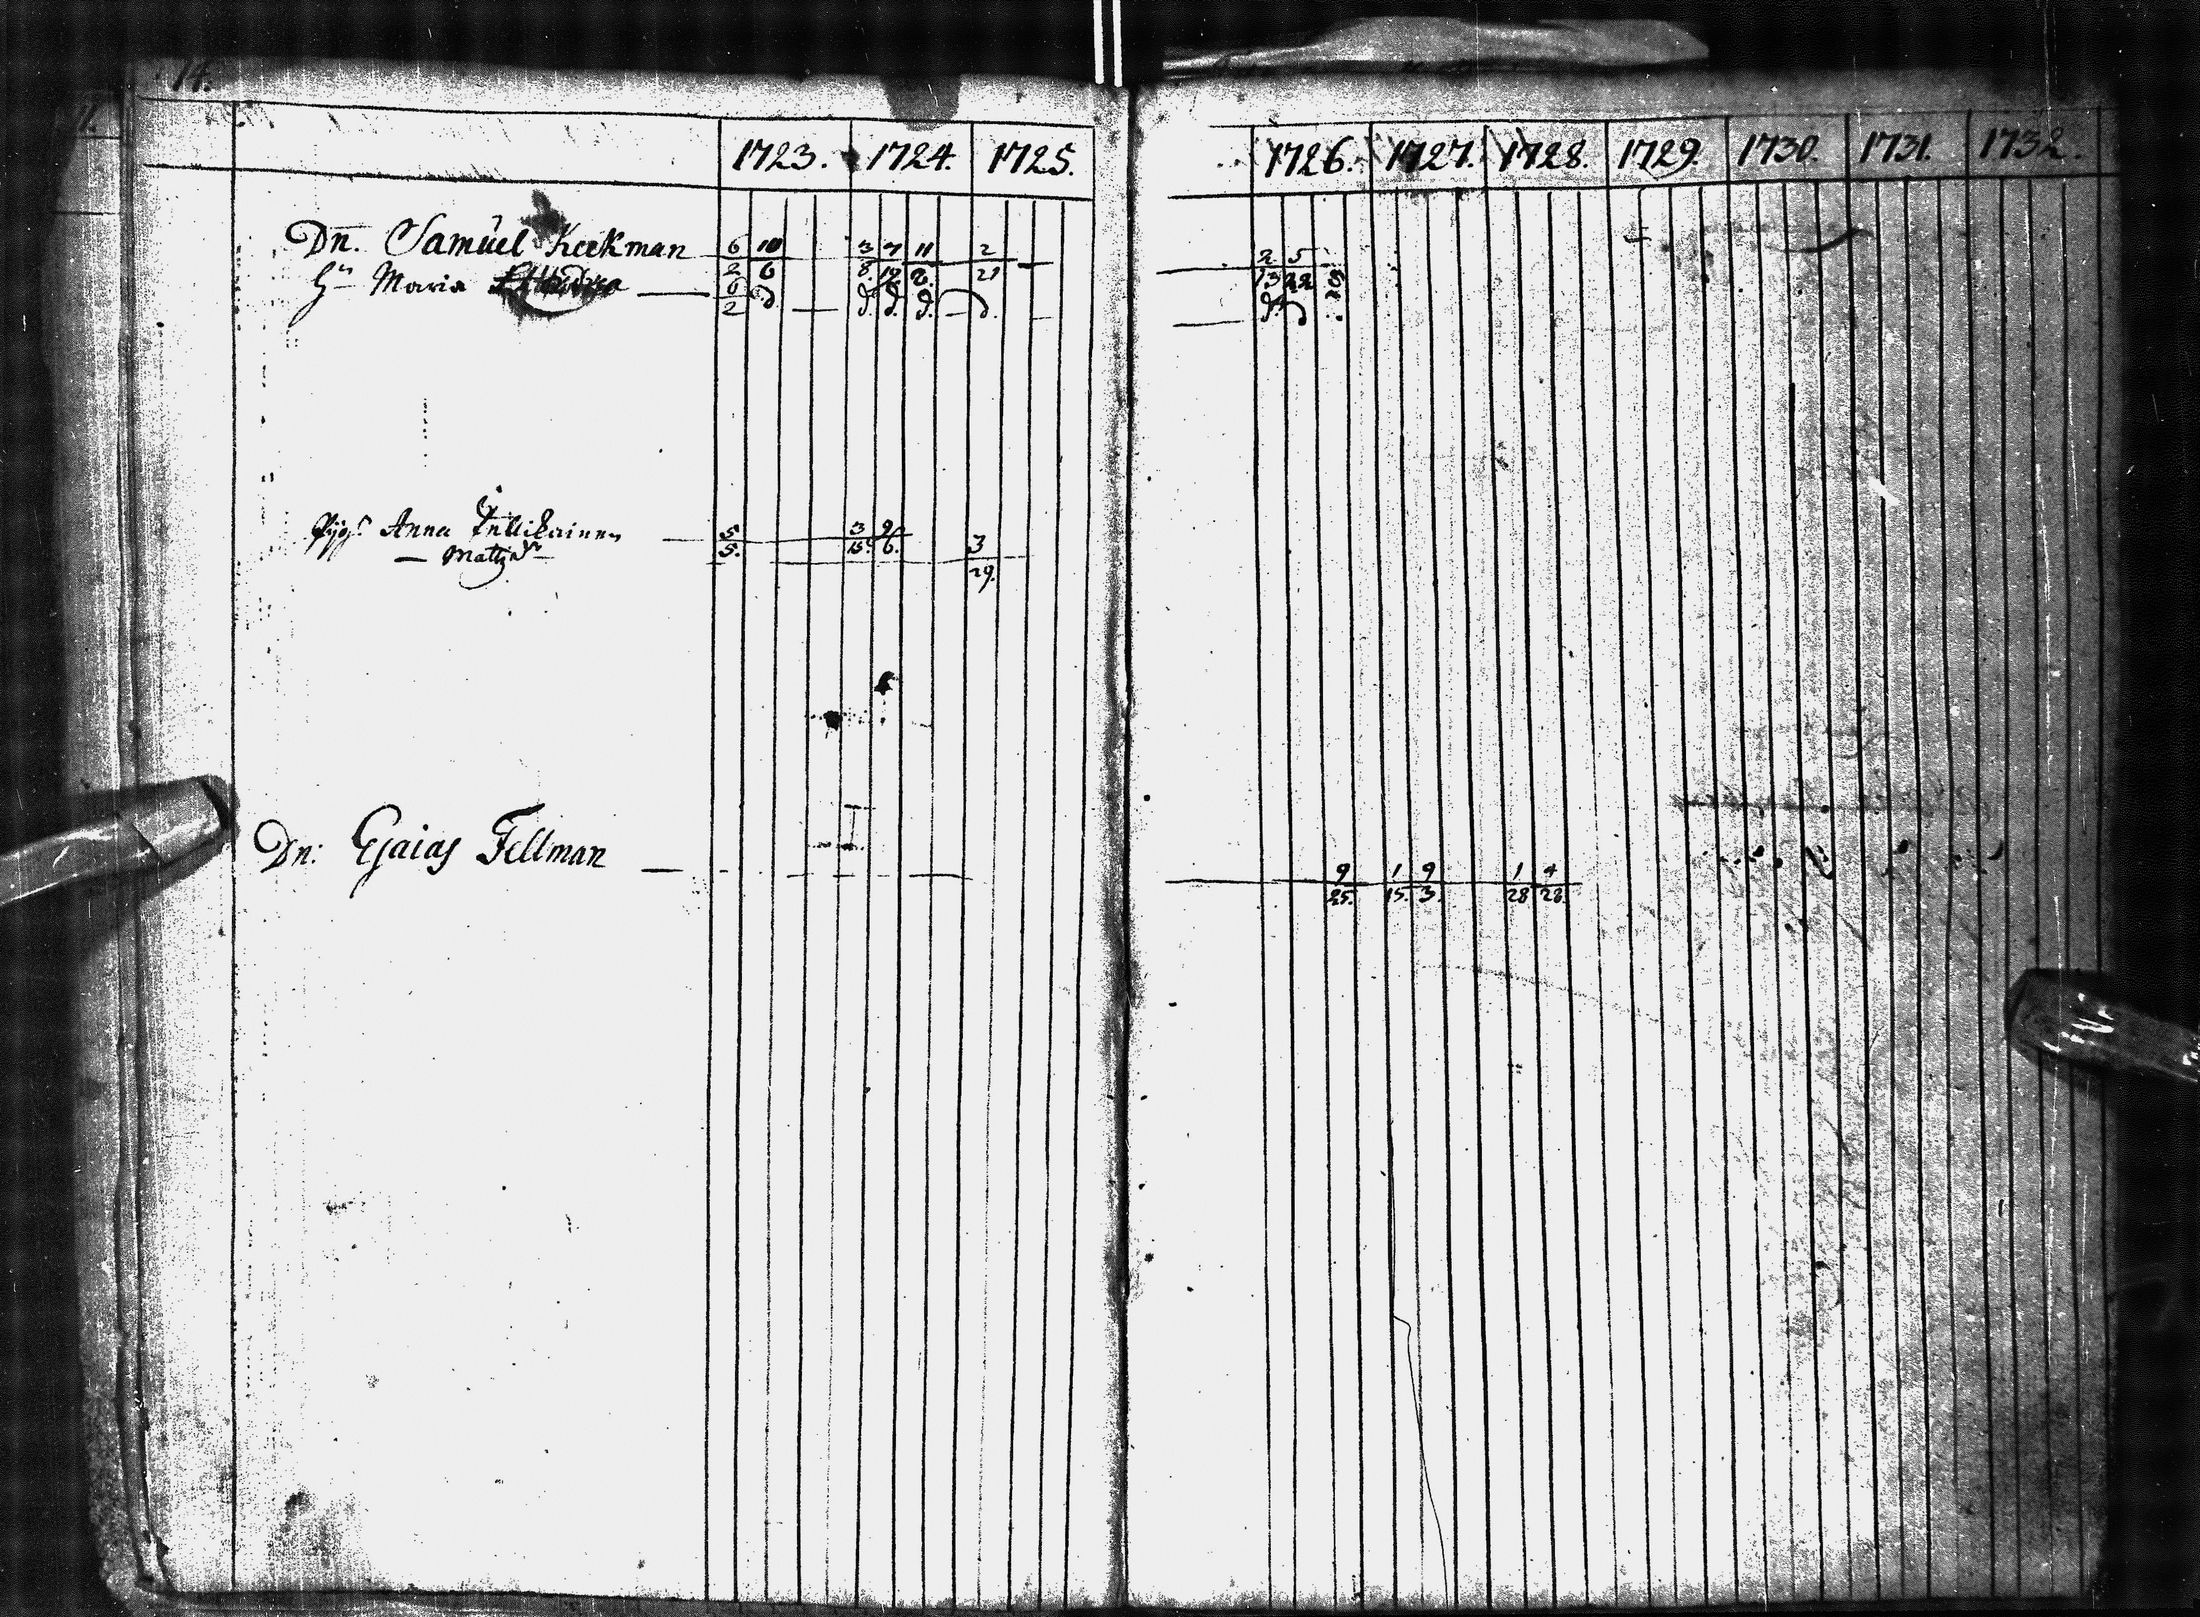 14.
1723. 1724. 1725. 1726. 1727. 1728. 1729. 1730. 1731. 1732.
Dn. Samuel Keekman 6 10 3 7 11 2 2 5
2 6 8. 21 13 22
H:n Maria 6 d d. d. d. d. d. d
2
Anna 5 3 9
5. 15. 6. 3
— Matts dr
29.
Dn: Esaias Fellman 9 1 9 1 4
25. 15. 3. 28 28.